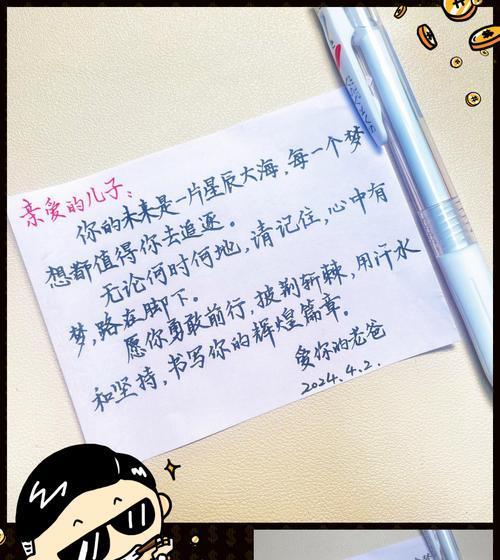 亲爱的儿子：
你的未来是一片星辰大海，每一个梦
想都值得你去追逐。
无论何时何地，请记住，心中有
梦，路在脚下。
愿你勇敢前行，披荆斩棘，用汗水
和坚持，书写你的辉煌篇章。
爱你的老爸
2024.4.2.